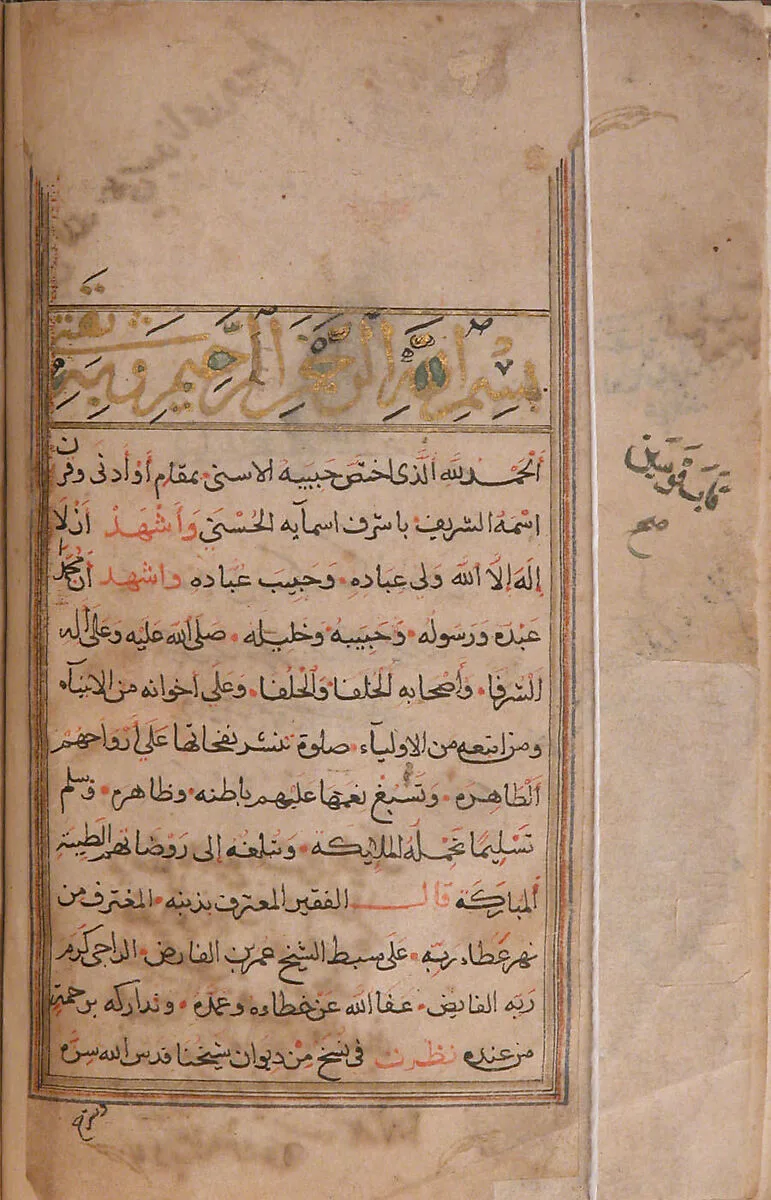 بسم الله الرحمن الرحيم وبه ثقتي
الحمد لله الذى اختص حبيبه الاسنى بمقام أو أدنى وقرن
اسمه الشريف باشرف اسمآيه الحسنى وأشهد أن لا
إله إلا الله ولى عباده وحبيب عباده واشهد أن محمدا
عبده ورسوله وحبيبه وخليله صلى الله عليه وعلى آله
الشرفا وأصحابه الحلفا والخلفا وعلى أخوانه من الانبيآء
ومن اتبعه من الاوليآء صلوة تنشر نفحاتها على أرواحهم
الطاهره وتسبغ نعمتها عليهم باطنه وظاهره وسلم
تسليما تحمله الملايكة وتبلغه إلى روضاتهم الطيبة
المباركة قال الفقير المعترف بذنبه المغترف من
نهر عطاء ربه على سبط الشيخ عمر بن الفارض الراجى كرم
ربه الفايض عفا الله عن خطاوه وعمده وتداركه برحمة
من عنده نظرت فى نسخ من ديوان شيخنا قدس الله سره
قاب قوسين
صح